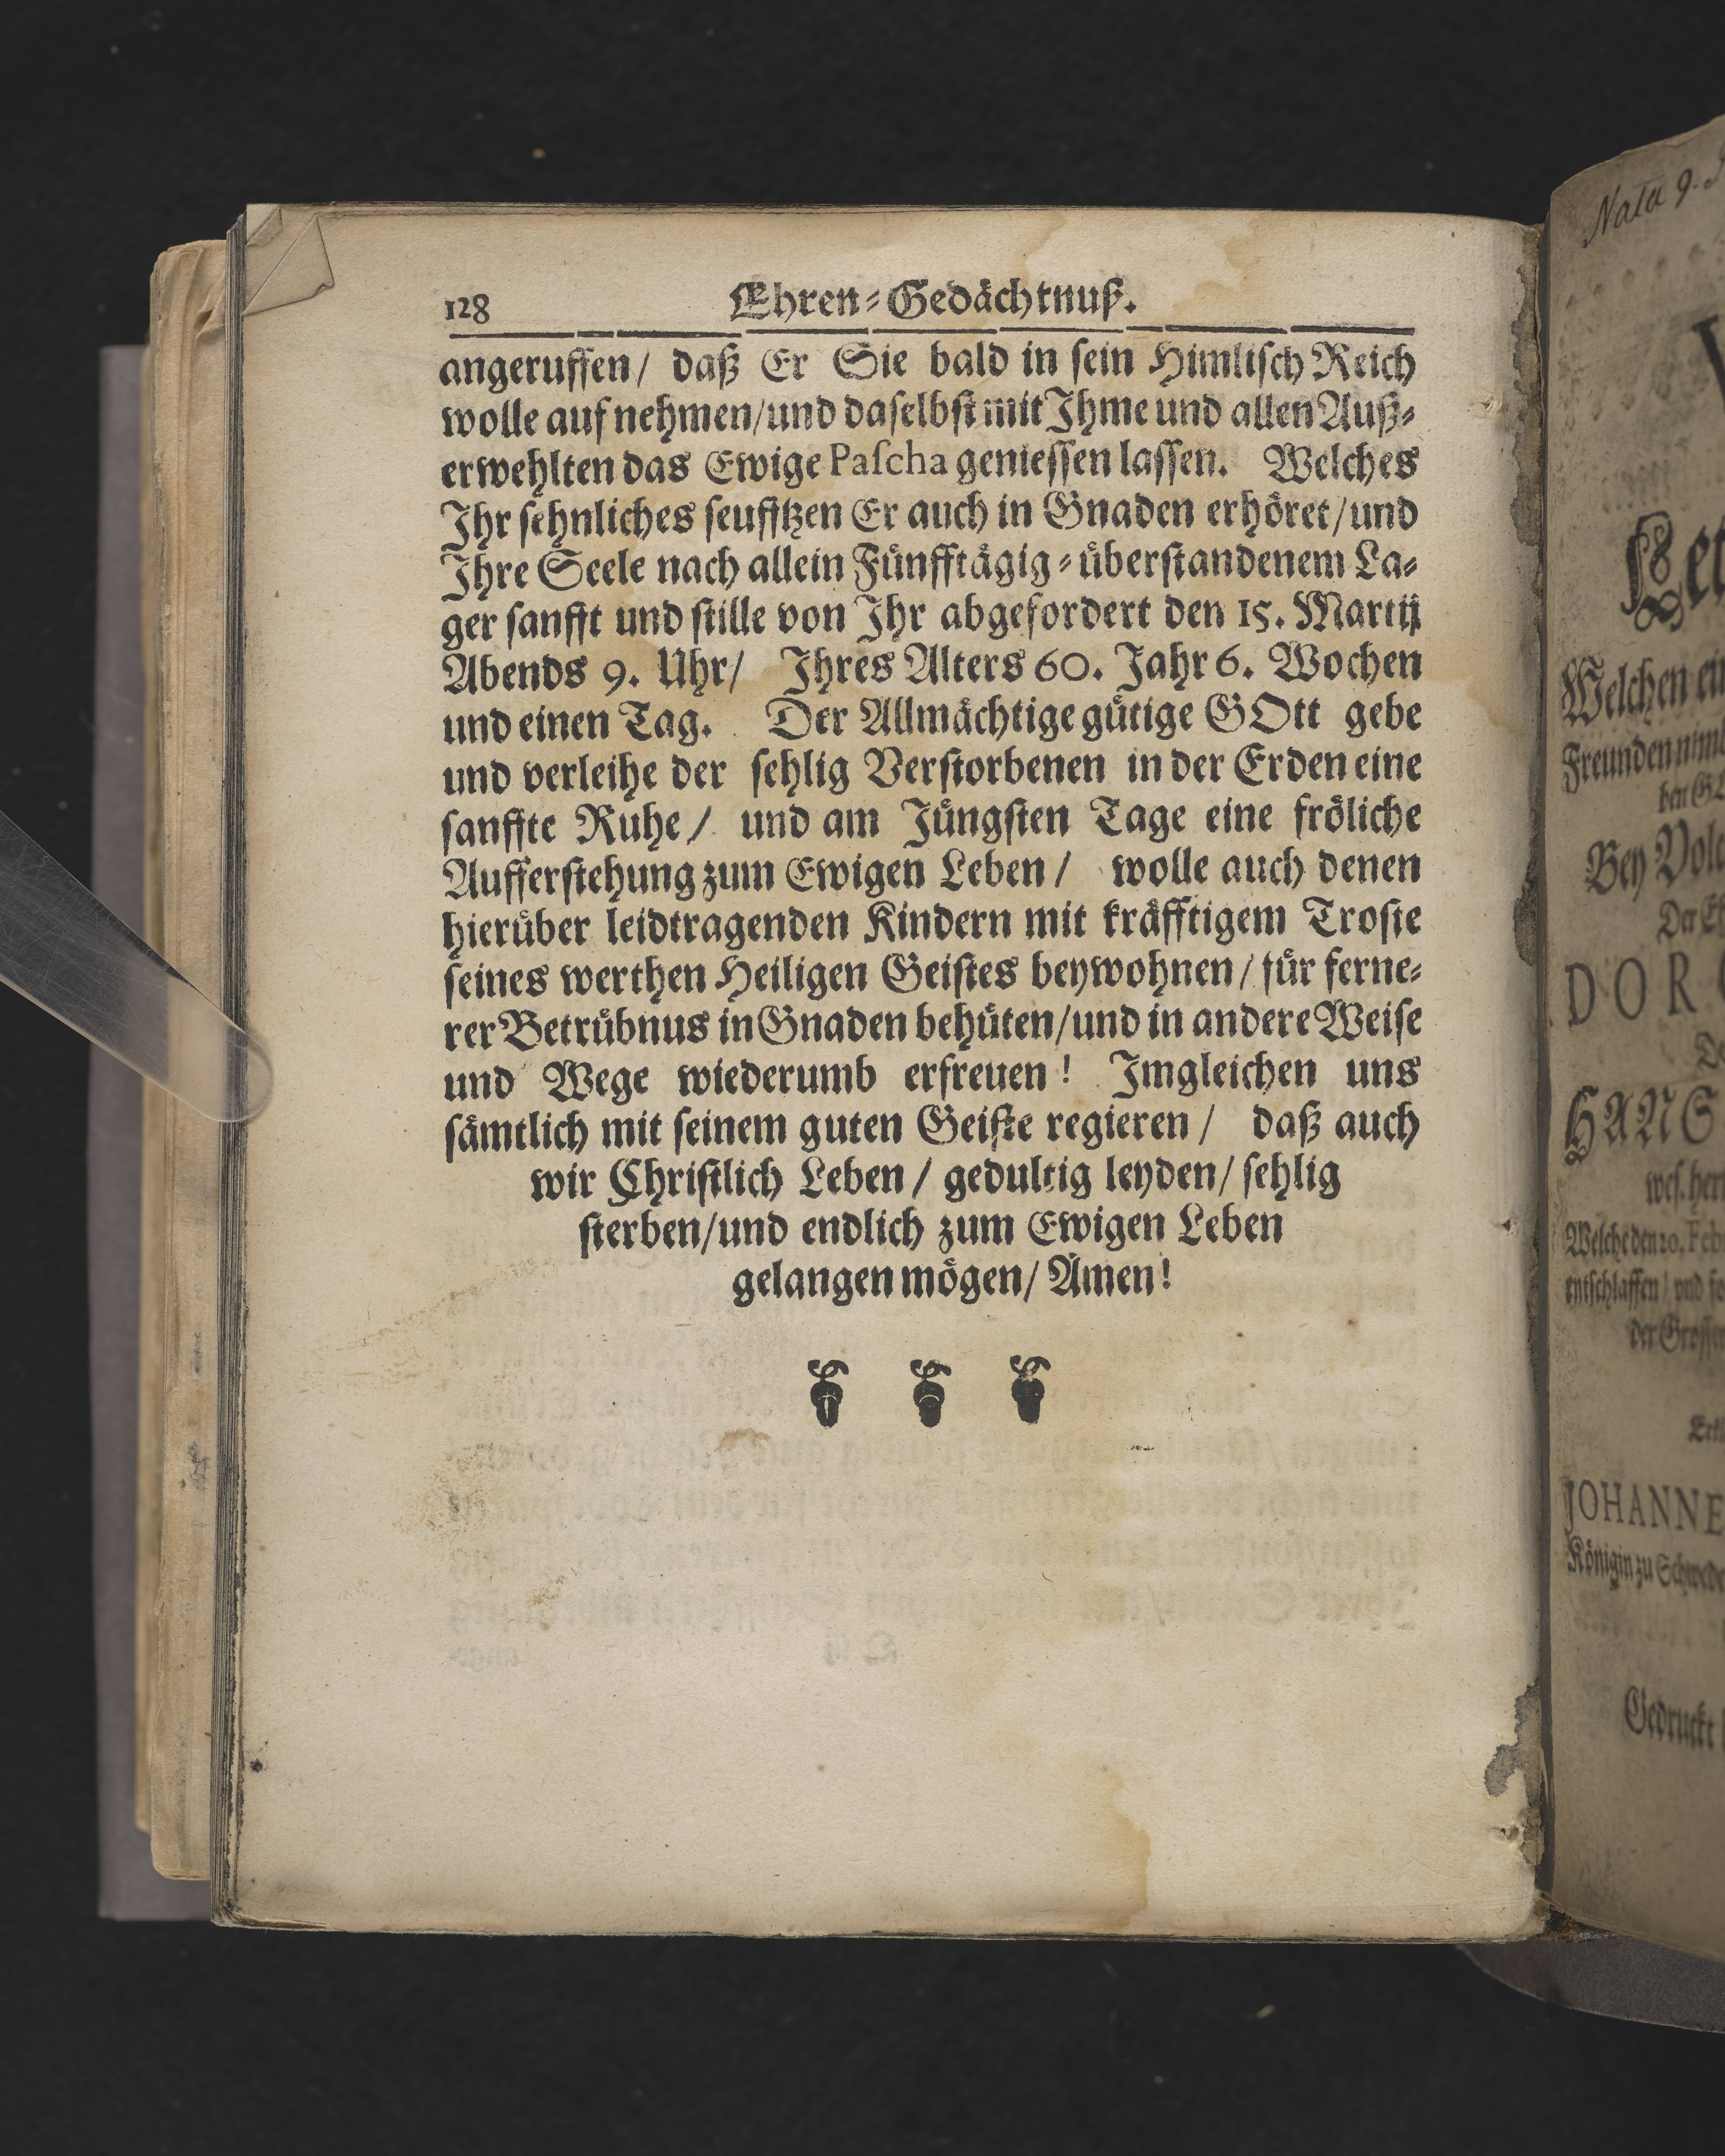 128 Ehren-Gedächtnuß.
angeruffen/ daß Er Sie bald in sein Himlisch Reich
wolle aufnehmen/und daselbst mit Ihme und allen Auß-
erwehlten das Ewige Pascha geniessen lassen. Welches
Ihr sehnliches seufftzen Er auch in Gnaden erhöret/und
Ihre Seele nach allein Fünfftägig-überstandenem La-
ger sanfft und stille von Ihr abgefordert den 15. Martij
Abends 9. Uhr/ Ihres Alters 60. Jahr 6. Wochen
und einen Tag. Der Allmächtige gütige GOtt gebe
und verleihe der sehlig Verstorbenen in der Erden eine
sanffte Ruhe/ und am Jüngsten Tage eine fröliche
Aufferstehung zum Ewigen Leben/ wolle auch denen
hierüber leidtragenden Kindern mit kräfftigem Troste
seines werthen Heiligen Geistes beywohnen/für ferne-
rer Betrübnus in Gnaden behüten/und in andere Weise
und Wege wiederumb erfreuen! Imgleichen uns
sämtlich mit seinem guten Geiste regieren/ daß auch
wir Christlich Leben/ gedultig leyden/ sehlig
sterben/und endlich zum Ewigen Leben
gelangen mögen/ Amen!
Nata 9.
Welchen
Freunden
Bey
DOR
HANS
Welche den 20. Feb
entschlaffen/ vnd
JOHANNE
Königin zu Schwede
Gedruckt